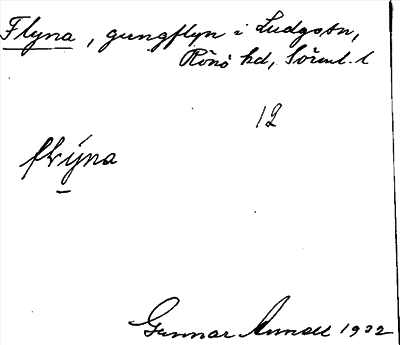 Flyna, gungflyn i Ludgotn,
Rönö hd, Sörml. l
12
flýna
Gunnar Annell 1932